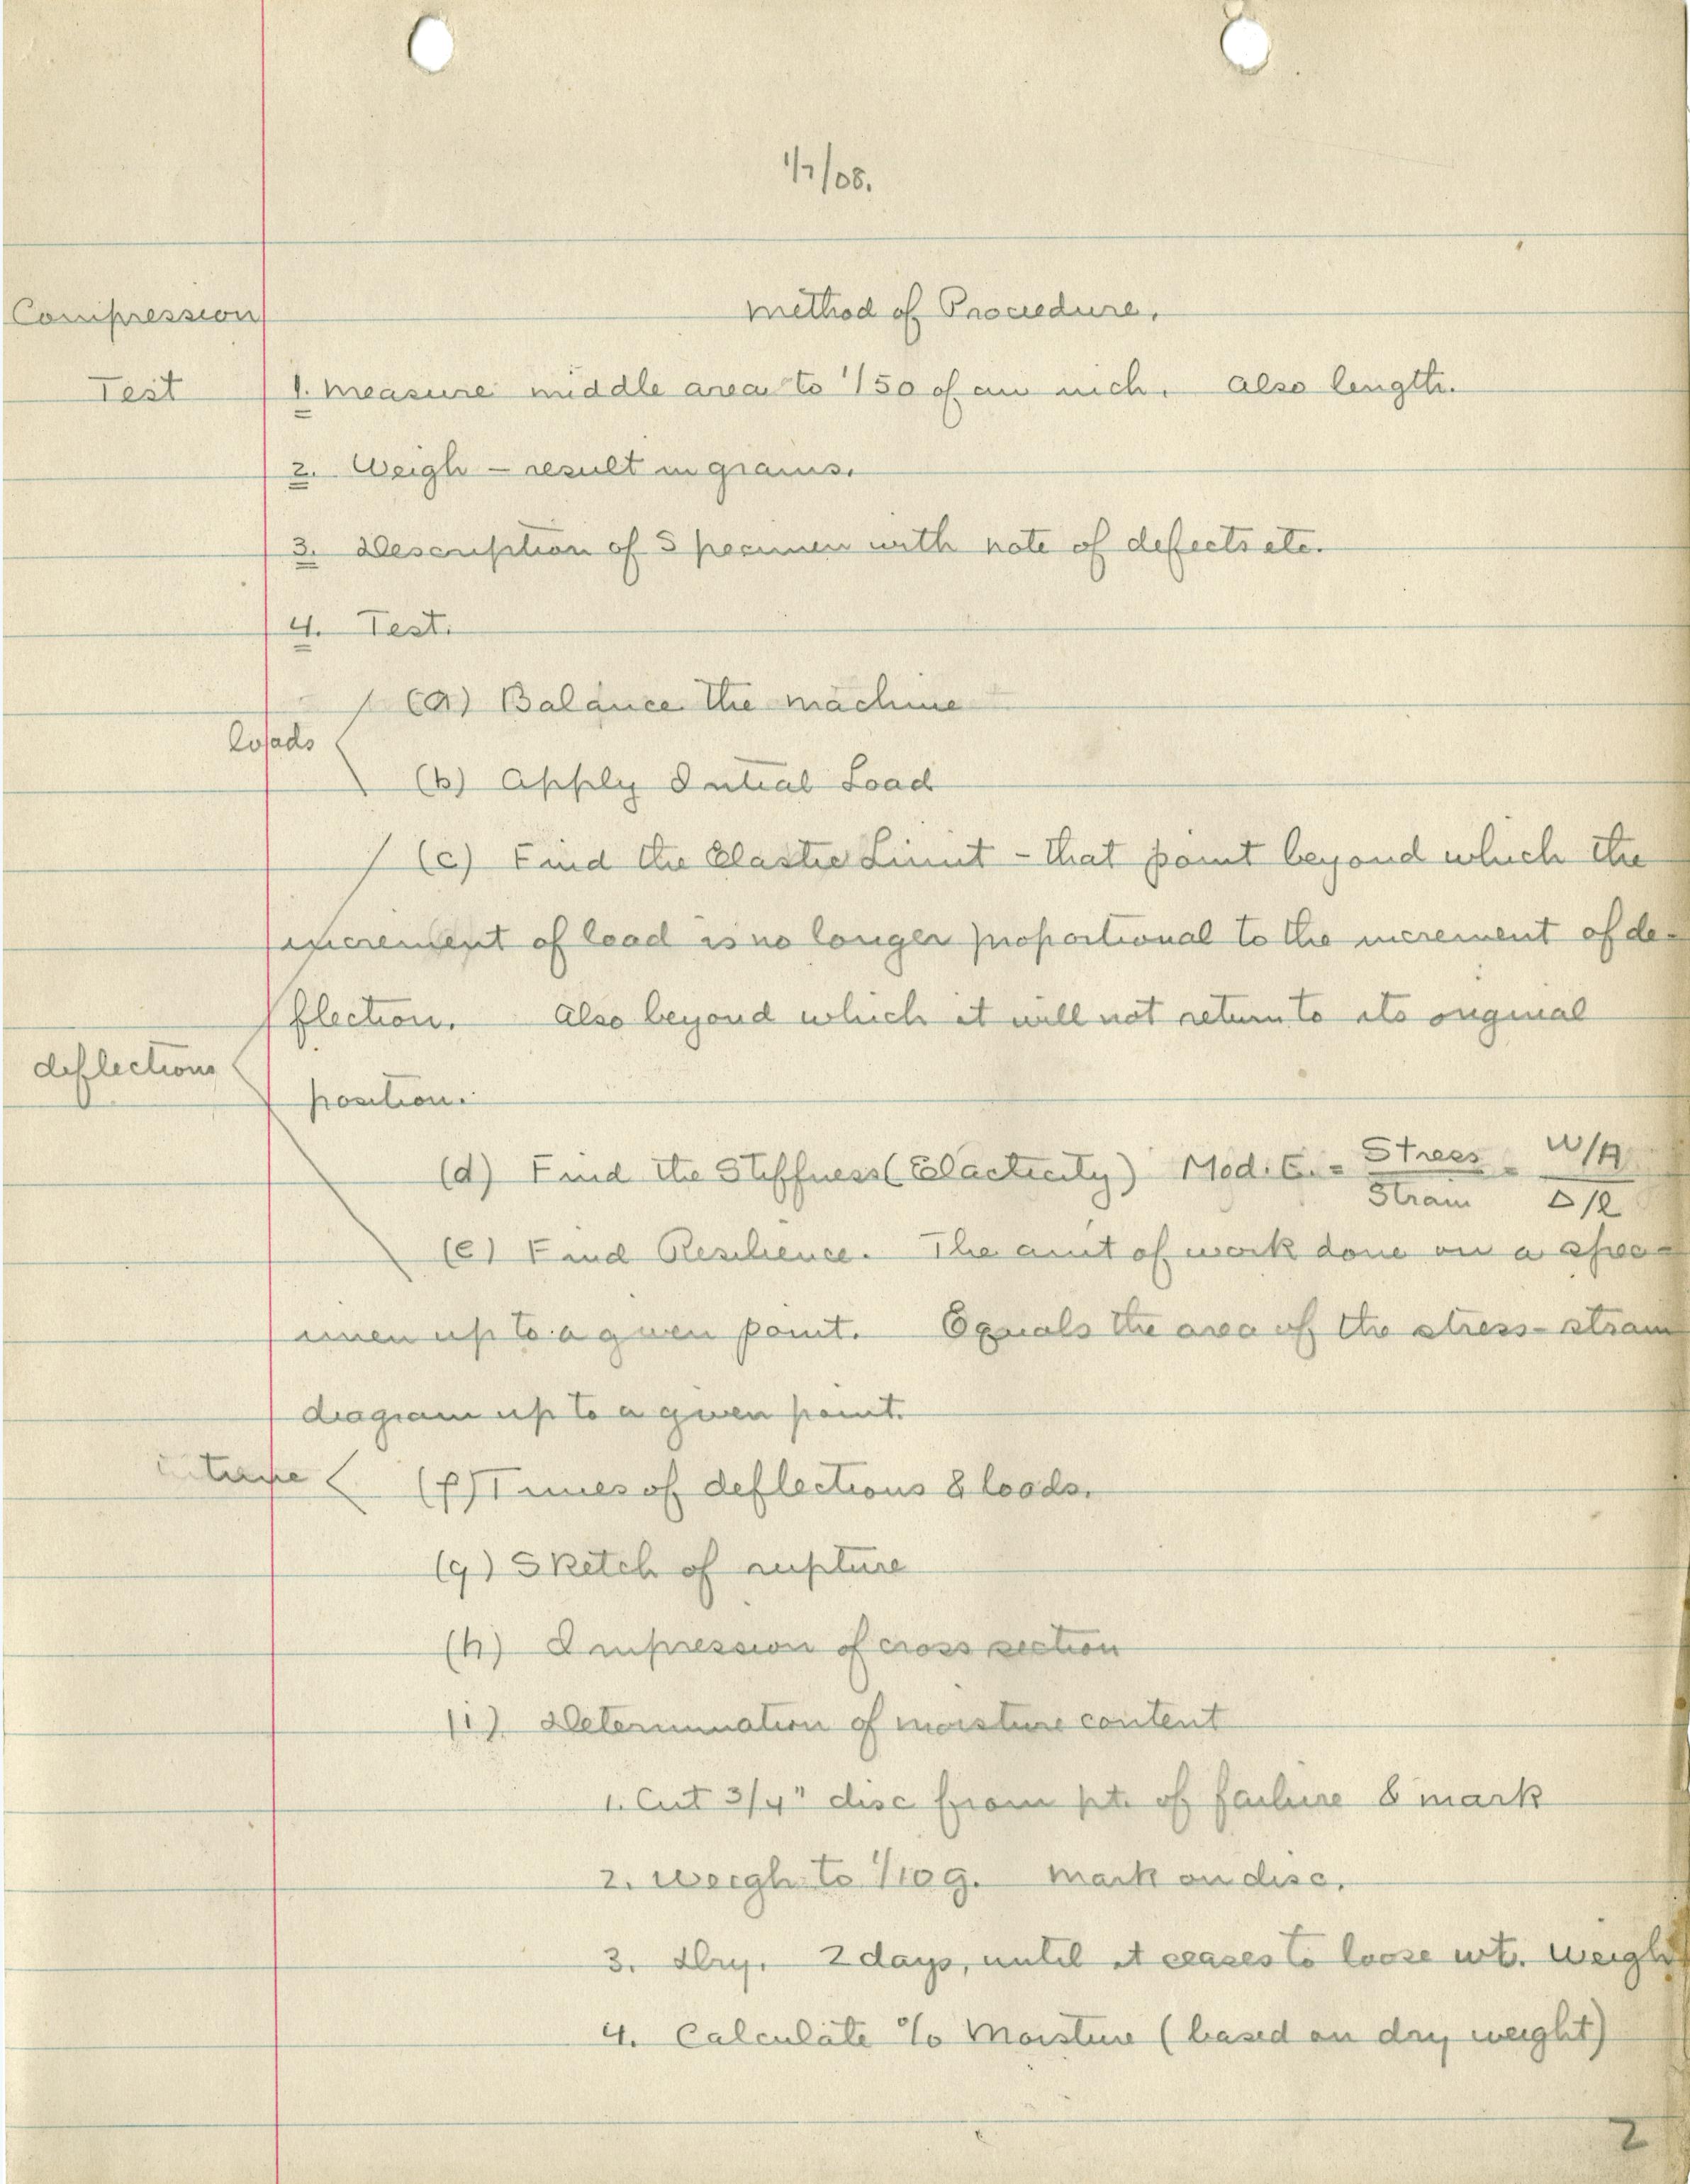 1/7/08.
Compression
Method of Procedure.
Test
1. Measure middle area to 1/50 of an inch. Also length.
2. Weigh - result in grams.
3. Description of Specimen with note of defects etc.
4. Test.
(a) Balance the machine
loads
(b) Apply Initial Load
(c) Find the Elastic Limit - that point beyond which the
increment of load is no longer proportional to the increment of de-
flection. Also beyond which it will not return to its original
deflections
position.
(d) Find the Stiffness (Elasticity) Mod. E. = Stress/Strain = W/A / Δ/l
(e) Find Resilience. The amt of work done on a spec-
imen up to a given point. Equals the area of the stress-strain
diagram up to a given point.
(f) Times of deflections & loads.
(g) Sketch of rupture
(h) Impression of cross section
(i) Determination of moisture content
1. Cut 3/4" disc from pt. of failure & mark
2. Weigh to 1/10 g. Mark on disc.
3. Dry. 2 days, until it ceases to loose wt. Weigh
4. Calculate % Moisture (based on dry weight)
2